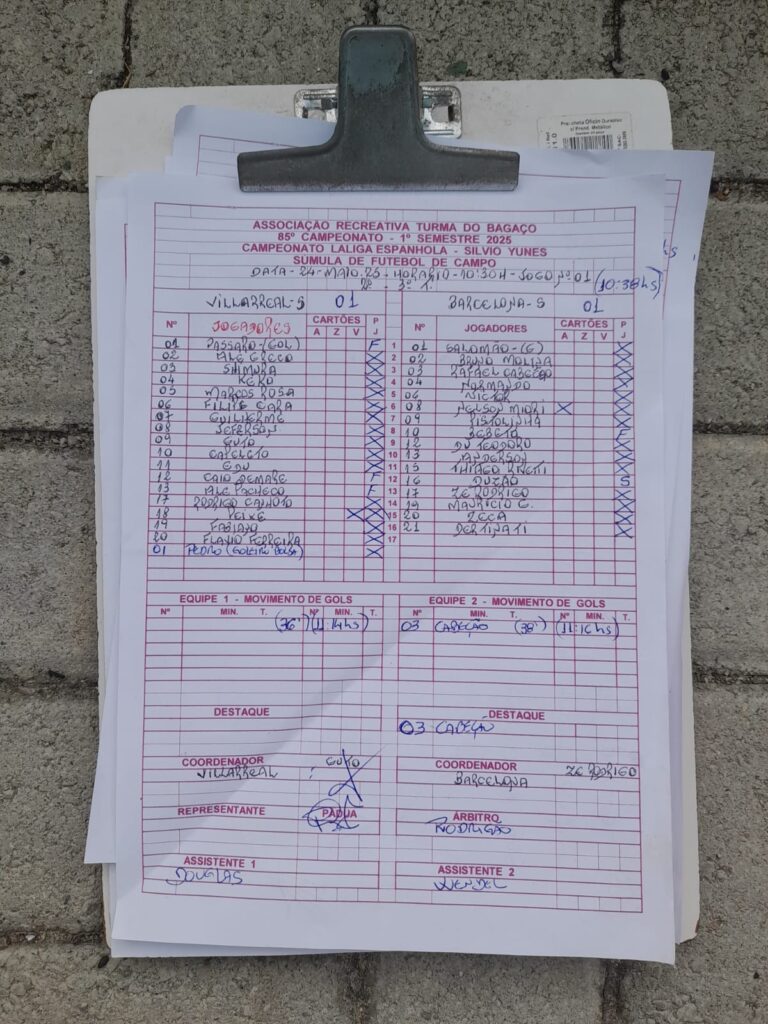 ASSOCIAÇÃO RECREATIVA TURMA DO BAGAÇO
85º CAMPEONATO - 1º SEMESTRE 2025
CAMPEONATO LALIGA ESPANHOLA - SILVIO YUNES
SUMULA DE FUTEBOL DE CAMPO
DATA - 24 - MAIO. 25 - HORARIO - 10:30H - JOGO Nº 01 (10:38hs)
VILLARREAL-S 01 BARCELONA-S 01
Nº JOGADORES CARTÕES A Z V P J Nº JOGADORES CARTÕES A Z V P J
01 PASSARO-(GOL) F 1 01 SALOMÃO-(G) X
02 ALE GRECO X 2 02 BRUNO MOLINA X
03 SHIMURA X 3 03 RAFAEL CABEÇÃO X
04 KEKO X 4 04 NORMANDO X
05 MARCOS ROSA X 5 06 VICTOR X
06 FILIPE CARA X 6 08 NELSON X X
07 GUILHERME X 7 09 PISTOLINHA X
08 JEFERSON X 8 10 BEBETO F
09 GUTO X 9 12 DU TEODORO X
10 CAPELETO X 10 13 ANDERSON X
11 EDU X 11 15 THIAGO X
12 CAIO F 12 16 DUZÃO S
13 ALE PACHECO F 13 17 ZÉ RODRIGO X
17 RODRIGO X 14 19 MAURICIO G. X
18 PEIXE X X 15 20 ZECA X
19 FABIANO X 16 21 BERTINATI X
20 FLAVIO FERREIRA X 17
01 PEDRO (GOLEIRO BOLSA) X
EQUIPE 1 - MOVIMENTO DE GOLS EQUIPE 2 - MOVIMENTO DE GOLS
Nº MIN. T. Nº MIN. T. Nº MIN. T. Nº MIN. T.
(36') (11:14hs) 03 CABEÇÃO (38') (11:16hs)
DESTAQUE DESTAQUE
03 CABEÇÃO
COORDENADOR GUTO COORDENADOR ZÉ RODRIGO
VILLARREAL BARCELONA
REPRESENTANTE PADUA ÁRBITRO
RODRIGÃO
ASSISTENTE 1 ASSISTENTE 2
DOUGLAS WENDEL